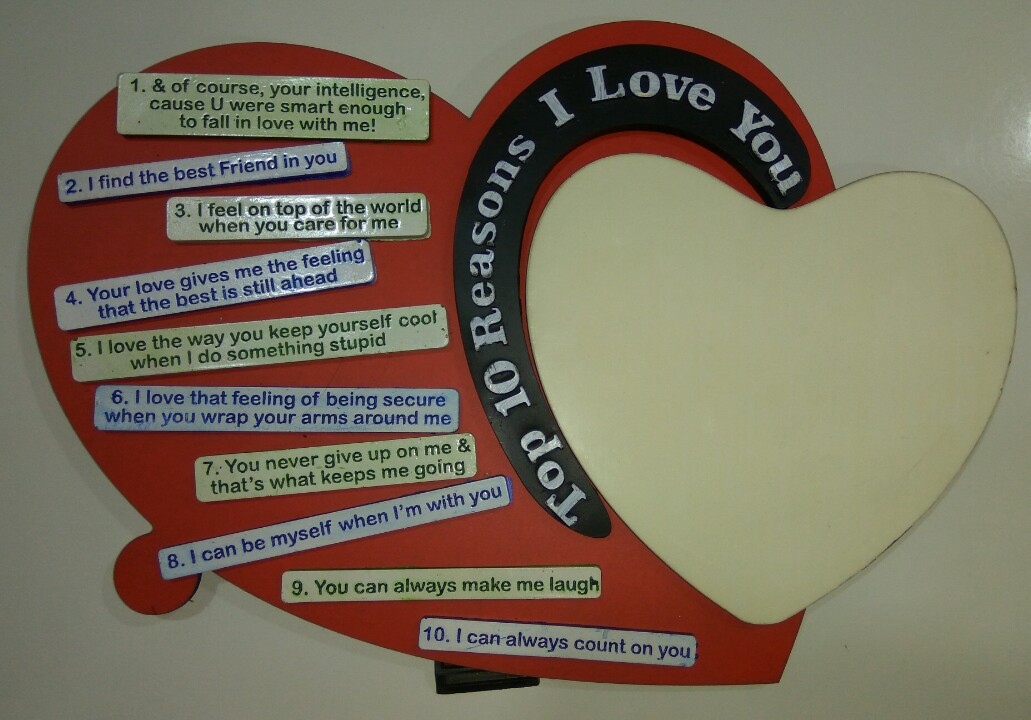 Top 10 Reasons I Love You
1. & of course, your intelligence,
cause U were smart enough
to fall in love with me!
2. I find the best Friend in you
3. I feel on top of the world
when you care for me
4. Your love gives me the feeling
that the best is still ahead
5. I love the way you keep yourself cool
when I do something stupid
6. I love that feeling of being secure
when you wrap your arms around me
7. You never give up on me &
that's what keeps me going
8. I can be myself when I'm with you
9. You can always make me laugh
10. I can always count on you